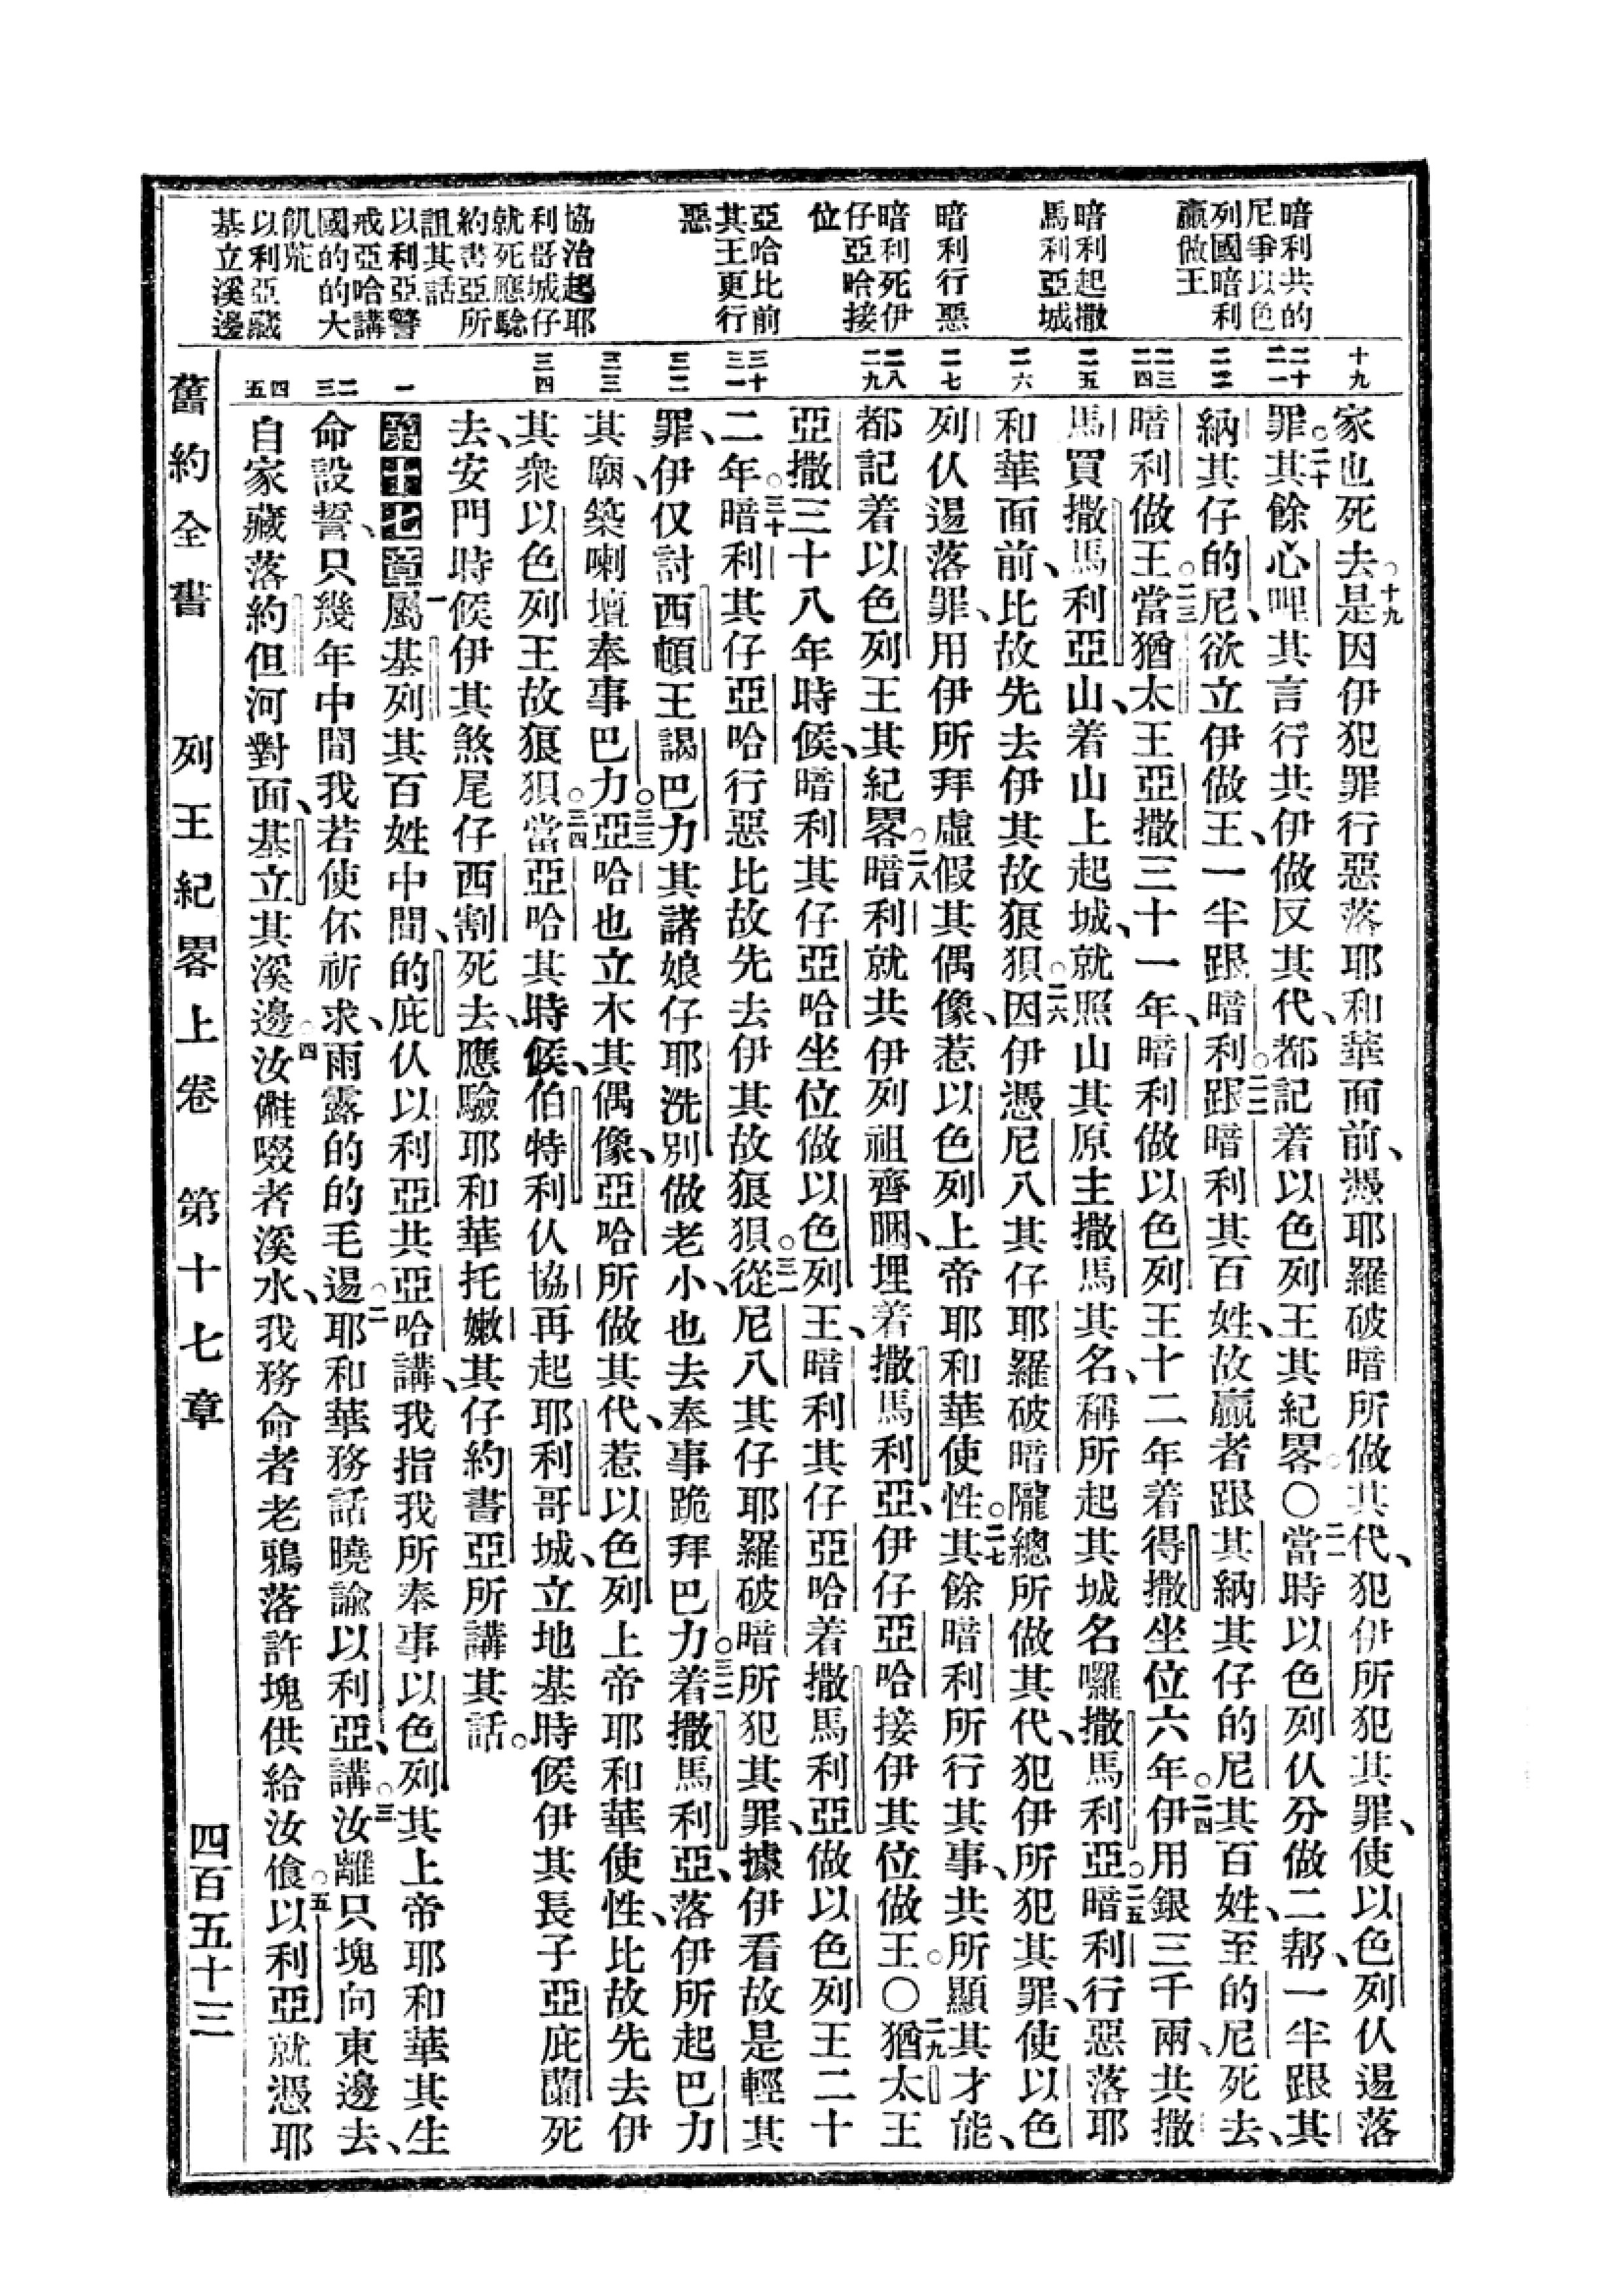 暗利共的
尼爭以色
列國暗利
贏做王
暗利起撒
馬利亞城
暗利行惡
暗利死伊
仔亞哈接
位
亞哈比前
其王更行
惡
協治起耶
利哥城仔
就死應驗
約書亞所
詛其話
以利亞警
戒亞哈講
國的的大
飢荒
以利亞藏
基立溪邊
十九
二十
二一
二二
二三
二四
二五
二六
二七
二八
二九
三十
三一
三二
三三
三四
一
二
三
四
五
家也死去。十九是因伊犯罪行惡落耶和華面前、憑耶羅破暗所做其代、犯伊所犯其罪、使以色列仈逿落
罪。二十其餘心哩其言行共伊做反其代、都記着以色列王其紀畧。○二一當時以色列仈分做二帮、一半跟其
納其仔的尼、欲立伊做王、一半跟暗利。二二跟暗利其百姓、故贏者跟其納其仔的尼其百姓、至的尼死去、
暗利做王。二三當猶太王亞撒三十一年、暗利做以色列王十二年着得撒坐位六年。二四伊用銀三千兩、共撒
馬買撒馬利亞山、着山上起城、就照山其原主撒馬其名、稱所起其城名囉撒馬利亞。二五暗利行惡落耶
和華面前、比故先去伊其故狠狽。二六因伊憑尼八其仔耶羅破暗隴總所做其代、犯伊所犯其罪、使以色
列仈逿落罪、用伊所拜虛假其偶像、惹以色列上帝耶和華使性。二七其餘暗利所行其事、共所顯其才能、
都記着以色列王其紀畧。二八暗利就共伊列祖齊睏、埋着撒馬利亞、伊仔亞哈接伊其位做王。○二九猶太王
亞撒三十八年時候、暗利其仔亞哈坐位做以色列王、暗利其仔亞哈着撒馬利亞做以色列王二十
二年。三十暗利其仔亞哈行惡比故先去伊其故狠狽。三一從尼八其仔耶羅破暗所犯其罪、據伊看故是輕其
罪、伊仅討西頓王謁巴力其諸娘仔耶洗別做老小、也去奉事跪拜巴力。三二着撒馬利亞、落伊所起巴力
其廟、築喇壇奉事巴力。三三亞哈也立木其偶像、亞哈所做其代、惹以色列上帝耶和華使性、比故先去伊
其衆以色列王故狠狽。三四當亞哈其時候、伯特利仈協再起耶利哥城、立地基時候伊其長子亞庇蘭死
去、安門時候伊其煞尾仔西割死去、應驗耶和華托嫩其仔約書亞所講其話。
第十七章 一屬基列其百姓中間、的庇仈以利亞共亞哈講、我指我所奉事以色列其上帝耶和華其生
命設誓、只幾年中間我若使伓祈求、雨露的的毛逿。二耶和華務話曉諭以利亞、講。三汝離只塊向東邊去、
自家藏落約但河對面、基立其溪邊。四汝𠆧啜者溪水、我務命者老鴉落許塊供給汝飧。五以利亞就憑耶
舊約全書 列王紀畧上卷 第十七章 四百五十三